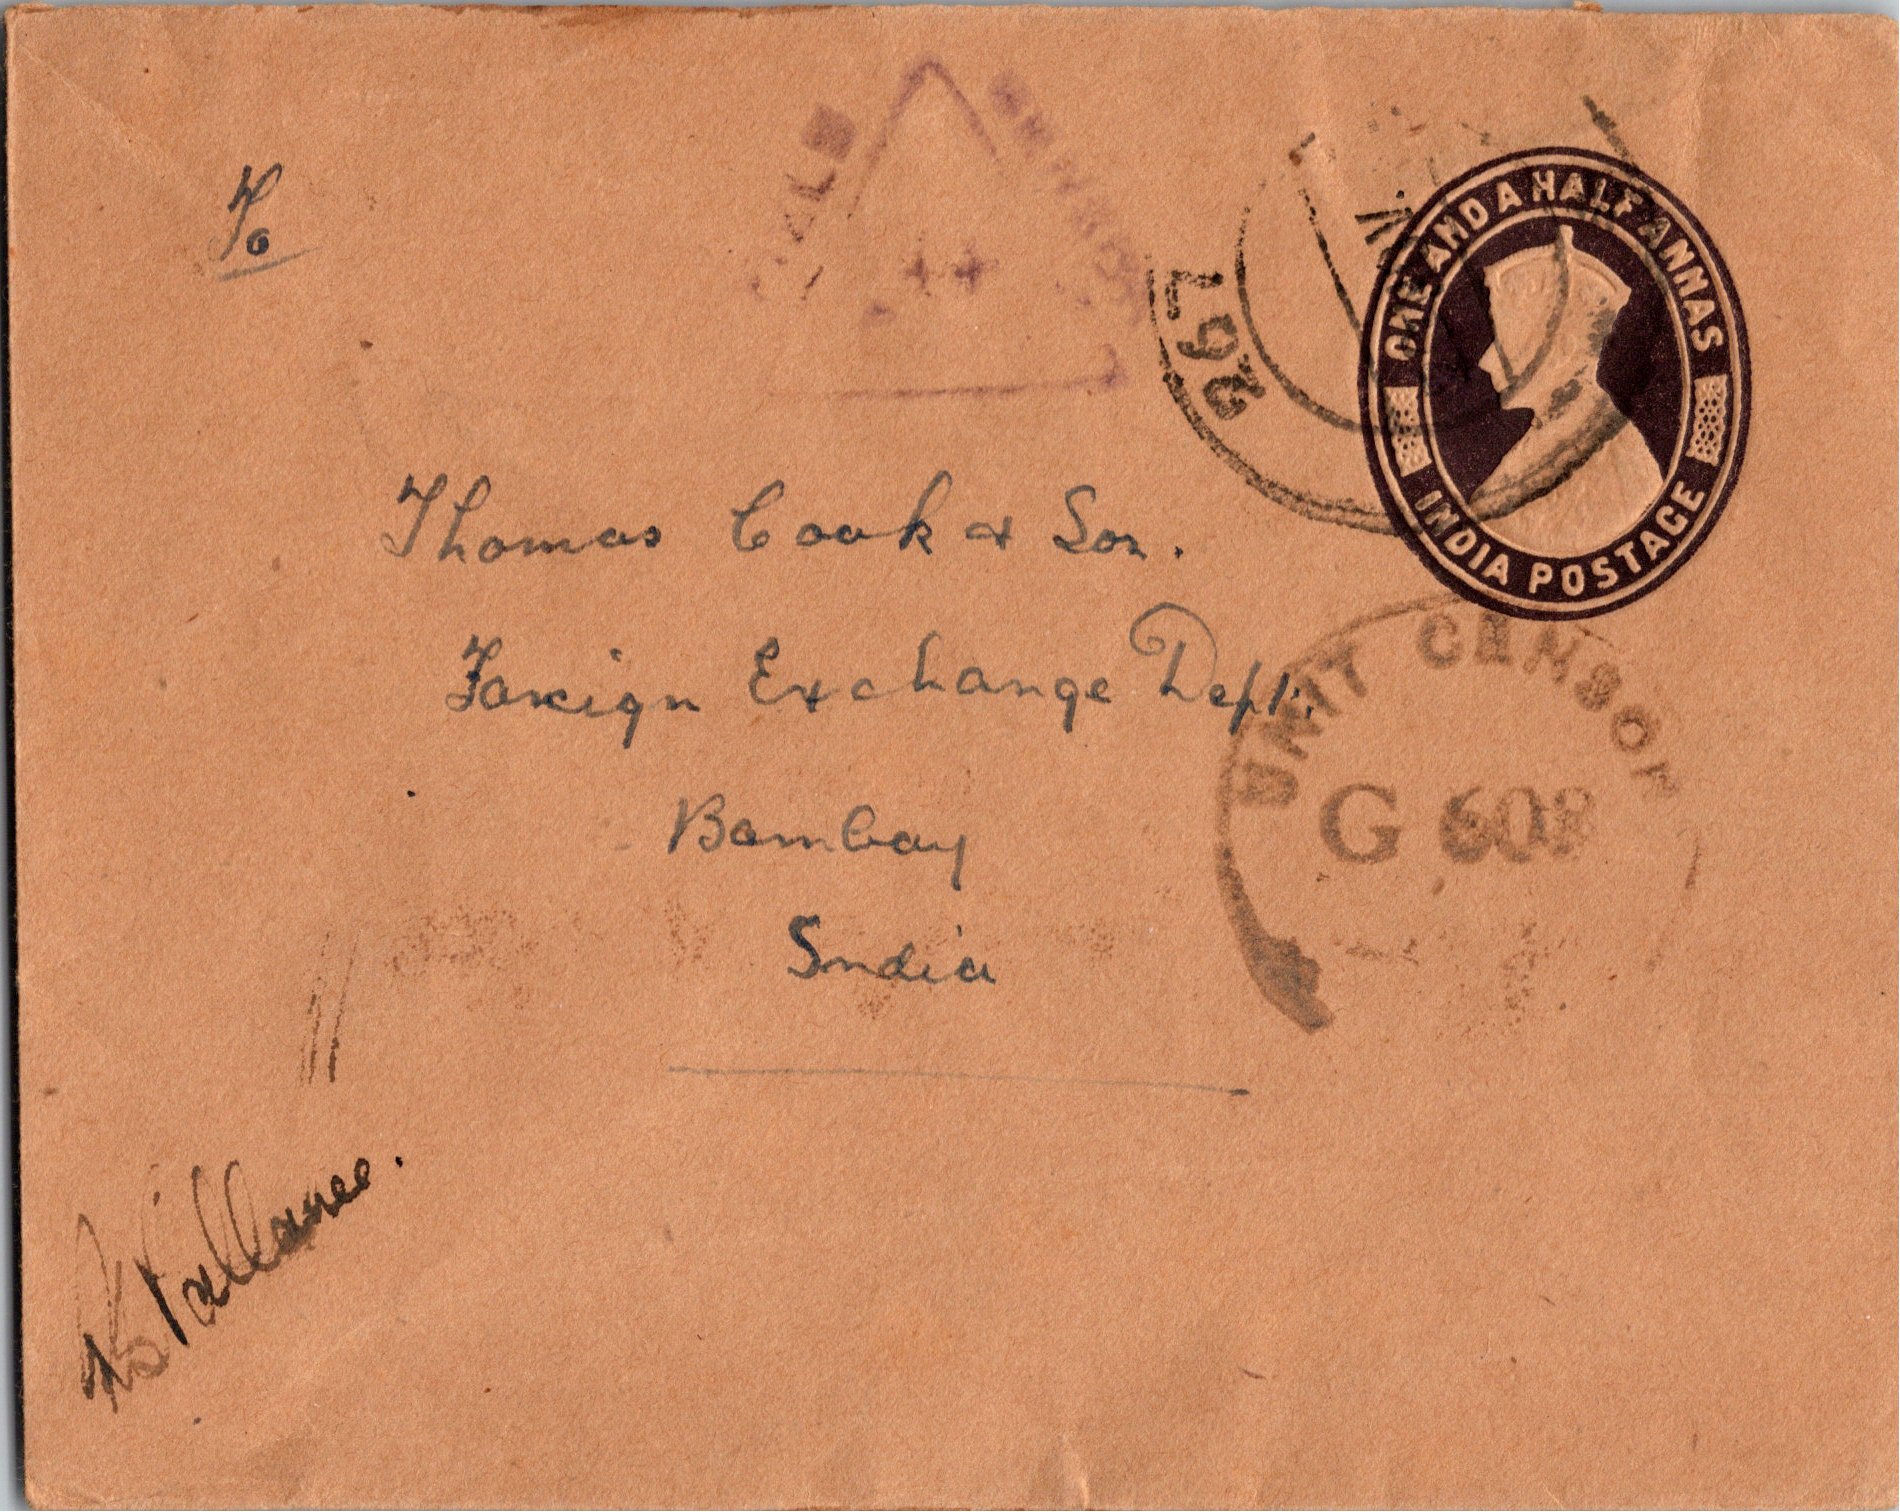 To
ONE AND A HALF ANNAS
INDIA POSTAGE
Thomas Cook & Son.
Foreign Exchange Dept.
Bombay
India
UNIT CENSOR